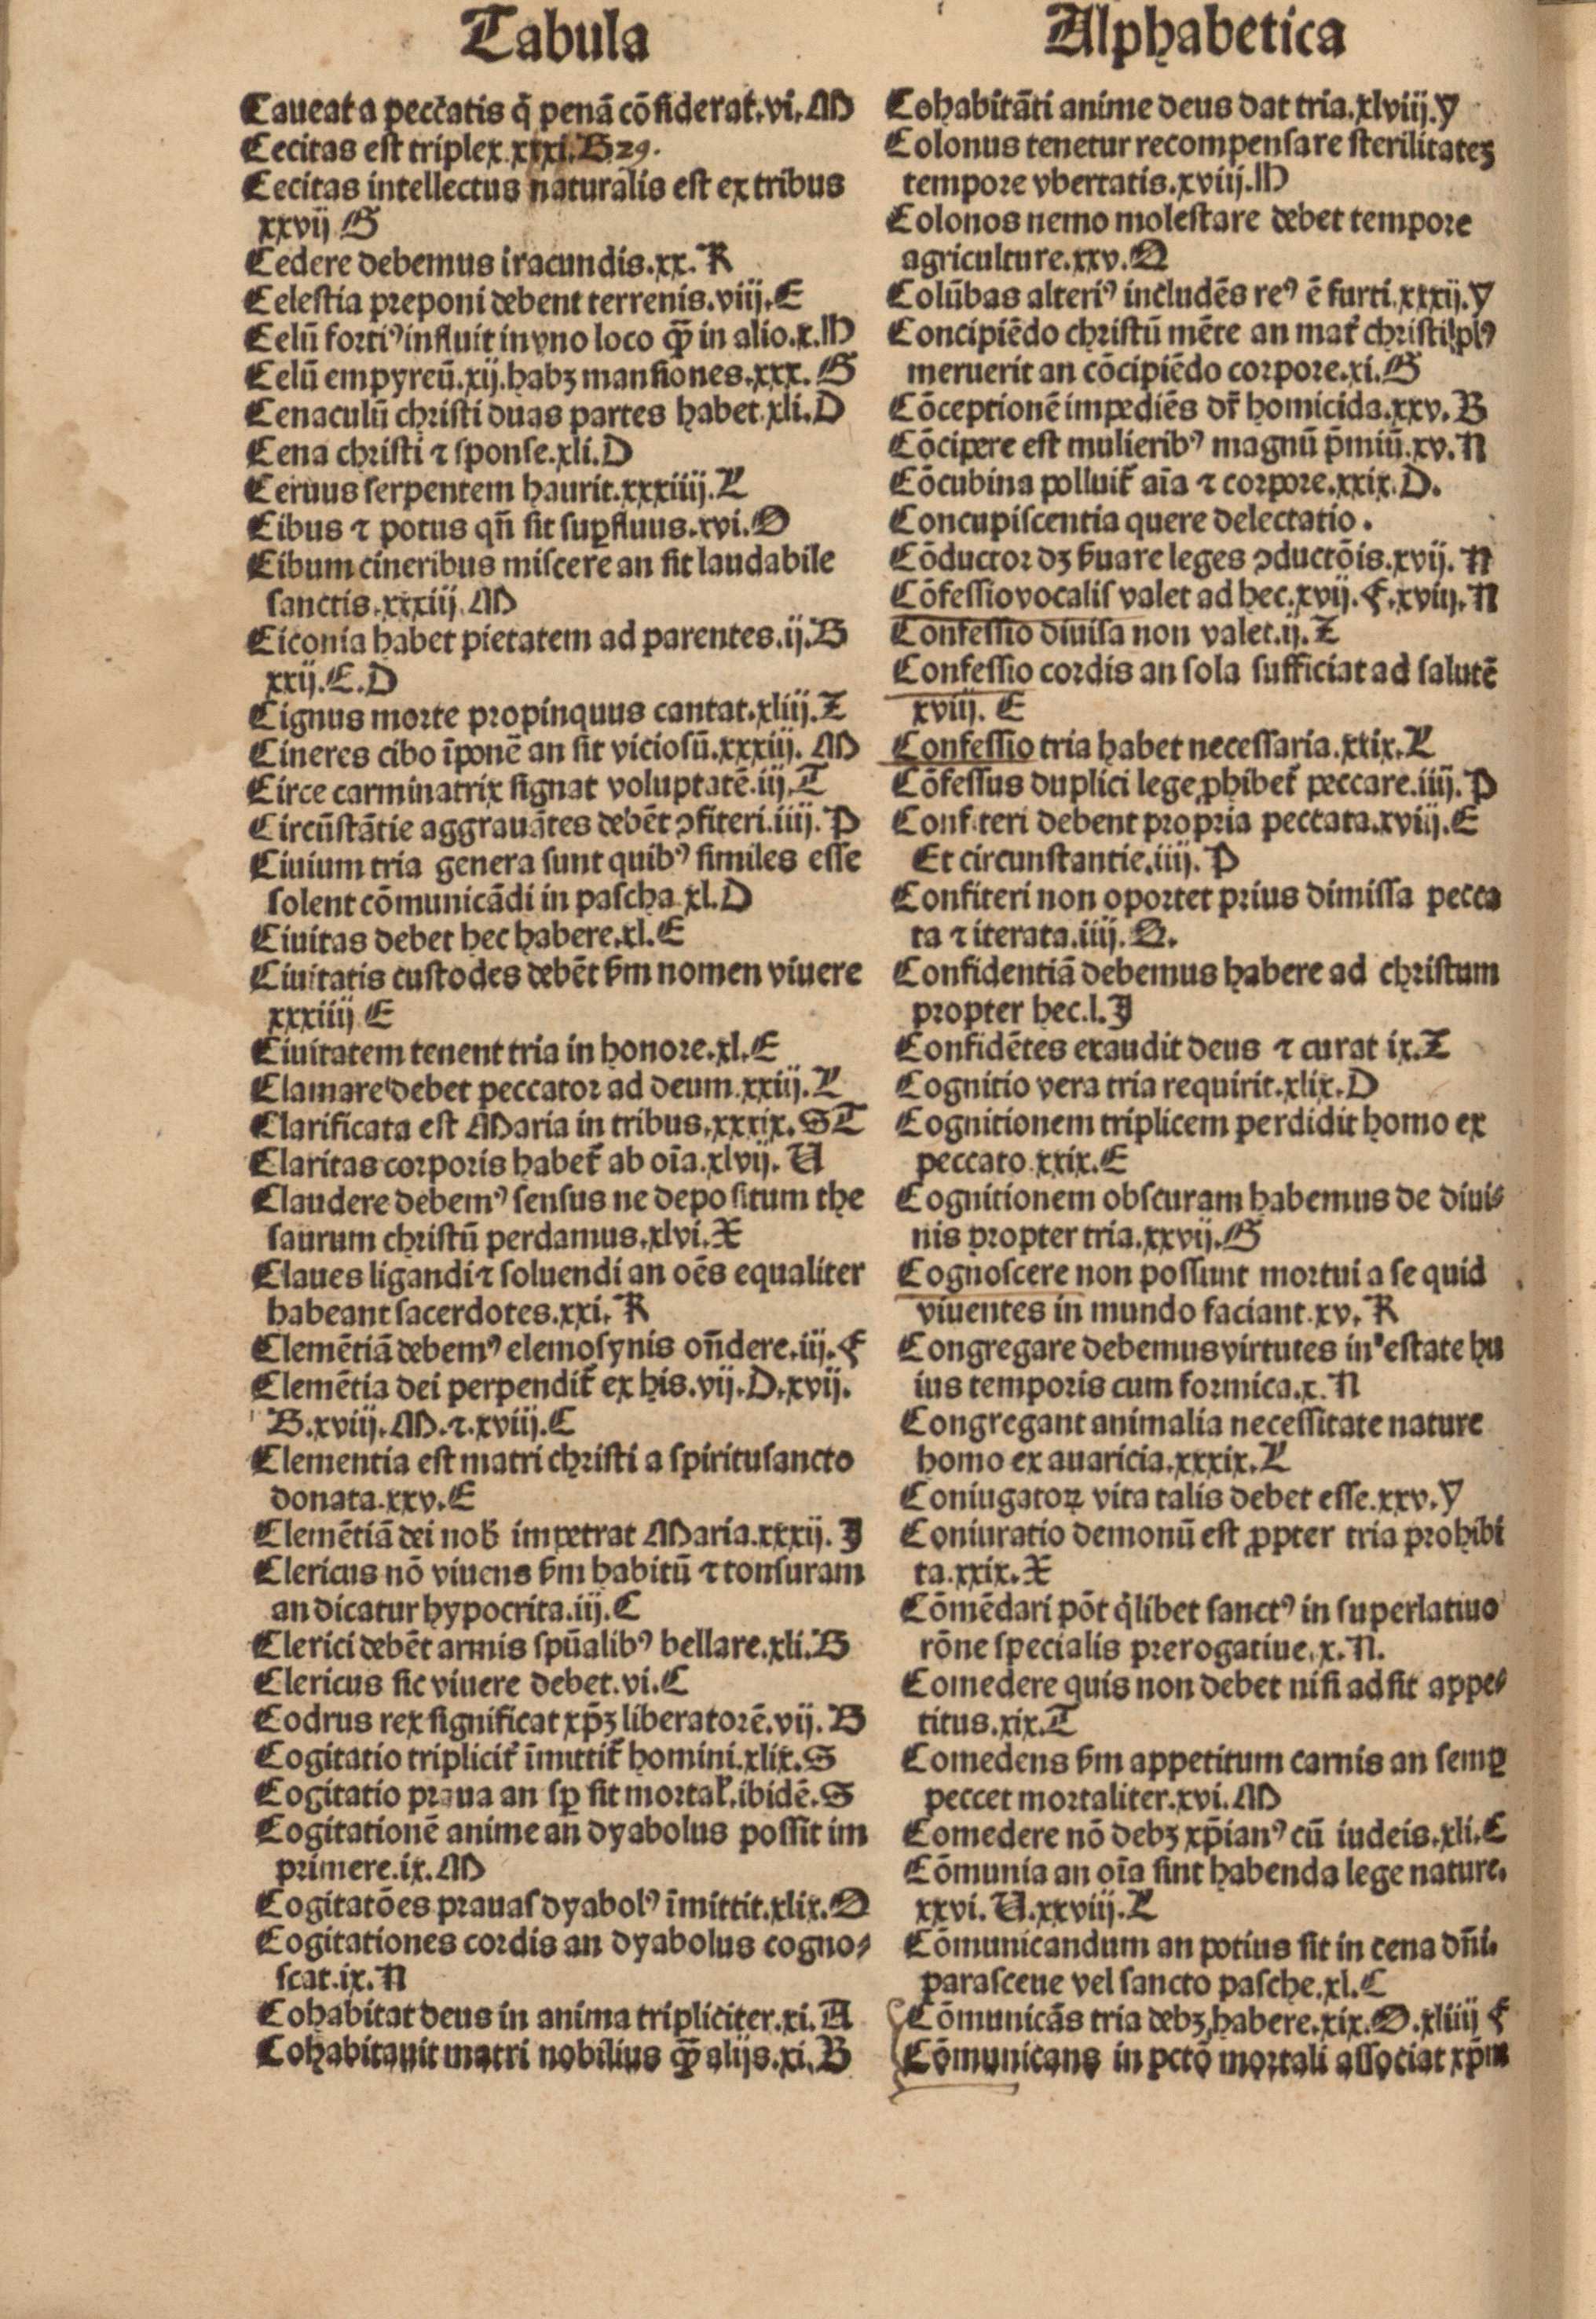 Tabula
Caueat a peccatis q̄ penā cōsiderat.vi.M
Cecitas est triplex.xxxi.B 29.
Cecitas intellectus naturalis est ex tribus
xxvij G
Cedere debemus iracundis.xx.R
Celestia preponi debent terrenis.viij.E
Celū fortiꝰ influit in vno loco q̄ꝫ in alio.x.M
Celū empyreū.xij.habꝫ mansiones.xxx.G
Cenaculū christi duas partes habet.xli.D
Cena christi ⁊ sponse.xli.D
Ceruus serpentem haurit.xxxiiij.L
Cibus ⁊ potus qn̄ sit suꝑfluus.xvi.O
Cibum cineribus miscere an sit laudabile
sanctis.xxxiij.M
Ciconia habet pietatem ad parentes.ij.B
xxij.C.D
Cignus morte propinquus cantat.xliij.Z
Cineres cibo īponē an sit viciosū.xxxiij.M
Circe carminatrix signat voluptatē.iij.T
Circūstātie aggrauātes debēt ꝯfiteri.iiij.P
Ciuium tria genera sunt quibꝰ similes esse
solent cōmunicādi in pascha.xl.D
Ciuitas debet hec habere.xl.E
Ciuitatis custodes debēt ẜm nomen viuere
xxxiiij E
Ciuitatem tenent tria in honore.xl.E
Clamare debet peccator ad deum.xxiij.L
Clarificata est Maria in tribus.xxxix.ST
Claritas corporis habet᷑ ab oīa.xlvij.V
Claudere debemꝰ sensus ne depositum the
saurum christū perdamus.xlvi.X
Claues ligandi ⁊ soluendi an oēs equaliter
habeant sacerdotes.xxi.R
Clemētiā debemꝰ elemosynis on̄dere.iij.F
Clemētia dei perpendit᷑ ex his.vij.D.xvij.
B.xviij.M.⁊.xviij.C
Clementia est matri christi a spiritusancto
donata.xxv.E
Clemētiā dei nob̄ impetrat Maria.xxxij.J
Clericus nō viuens ẜm habitū ⁊ tonsuram
an dicatur hypocrita.iij.C
Clerici debēt armis spūalibꝰ bellare.xli.B
Clericus sic viuere debet.vi.C
Codrus rex significat xp̄ꝫ liberatorē.vij.B
Cogitatio triplicit᷑ īmittit᷑ homini.xlix.S
Cogitatio praua an sꝑ sit mortal̄.ibidē.S
Cogitationē anime an dyabolus possit im
primere.ix.M
Cogitatōes prauas dyabolꝰ īmittit.xlix.O
Cogitationes cordis an dyabolus cogno⸗
scat.ix.N
Cohabitat deus in anima tripliciter.xi.A
Cohabitauit matri nobilius q̄ꝫ alijs.xi.B
Alphabetica
Cohabitāti anime deus dat tria.xlviij.Y
Colonus tenetur recompensare sterilitateꝫ
tempore vbertatis.xviij.M
Colonos nemo molestare debet tempore
agriculture.xxv.Q
Colūbas alteriꝰ includēs reꝰ ē furti.xxxij.Y
Concipiēdo christū mēte an mat᷑ christi plꝰ
meruerit an cōcipiēdo corpore.xi.G
Cōceptionē impediēs dr̄ homicida.xxv.B
Cōcipere est mulieribꝰ magnū p̄miū.xv.N
Cōcubina polluit᷑ aīa ⁊ corpore.xxix.D.
Concupiscentia quere delectatio.
Cōductor dꝫ ẜuare leges ꝯductōis.xvij.N
Cōfessio vocalis valet ad hec.xvij.F.xviij.N
Confessio diuisa non valet.ij.Z
Confessio cordis an sola sufficiat ad salutē
xviij.E
Confessio tria habet necessaria.xxix.L
Cōfessus duplici lege ꝓhibet᷑ peccare.iiij.P
Confiteri debent propria peccata.xviij.E
Et circunstantie.iiij.P
Confiteri non oportet prius dimissa pecca
ta ⁊ iterata.iiij.Q.
Confidentiā debemus habere ad christum
propter hec.l.J
Confidētes exaudit deus ⁊ curat ix.Z
Cognitio vera tria requirit.xlix.D
Cognitionem triplicem perdidit homo ex
peccato.xxix.E
Cognitionem obscuram habemus de diui⸗
nis propter tria.xxvij.G
Cognoscere non possunt mortui a se quid
viuentes in mundo faciant.xv.R
Congregare debemus virtutes in estate hu
ius temporis cum formica.x.N
Congregant animalia necessitate nature
homo ex auaricia.xxxix.L
Coniugatoꝝ vita talis debet esse.xxv.Y
Coniuratio demonū est ꝓpter tria prohibi
ta.xxix.X
Cōmēdari pōt q̄libet sanctꝰ in superlatiuo
rōne specialis prerogatiue.x.N.
Comedere quis non debet nisi adsit appe⸗
titus.xix.T
Comedens ẜm appetitum carnis an semꝑ
peccet mortaliter.xvi.M
Comedere nō debꝫ xp̄ianꝰ cū iudeis.xli.C
Cōmunia an oīa sint habenda lege nature.
xxvi.V.xxviij.L
Cōmunicandum an potius sit in cena dn̄i.
parasceue vel sancto pasche.xl.C
Cōmunicās tria debꝫ habere.xix.O.xliiij F
Cōmunicans in pctō mortali associat xp̄m